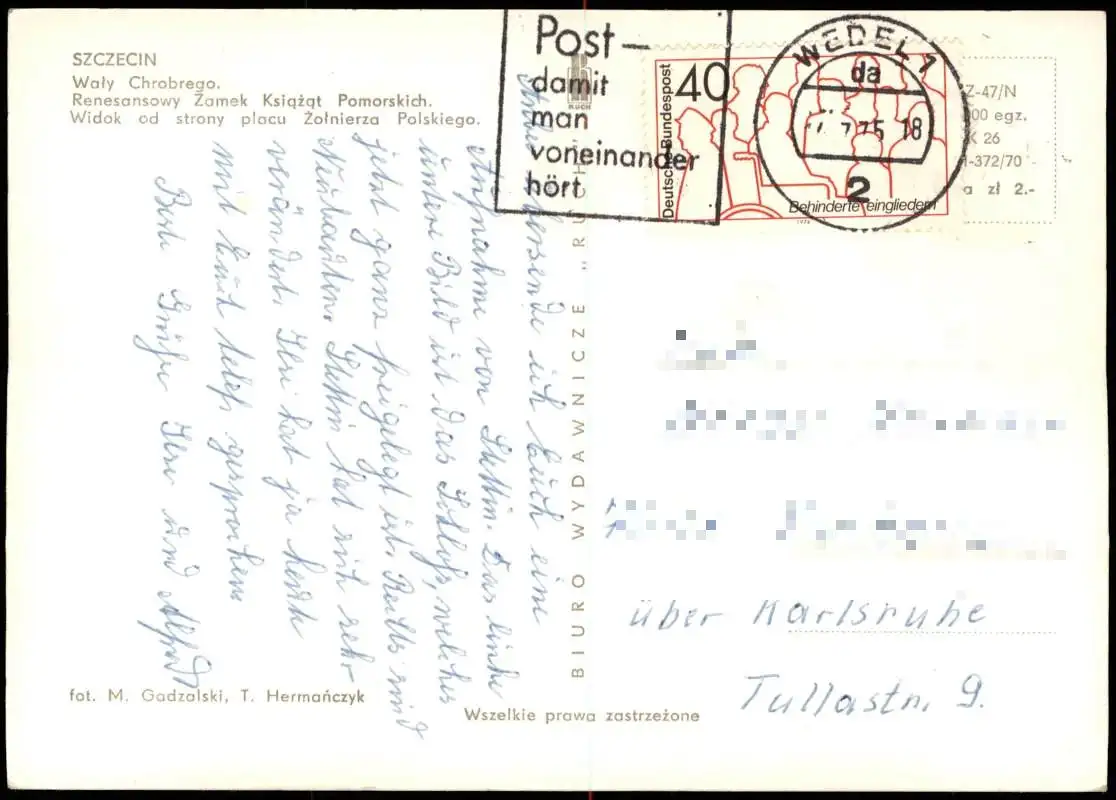 SZCZECIN
Wały Chrobrego.
Renesansowy Zamek Książąt Pomorskich.
Widok od strony placu Żołnierza Polskiego.
Post –
damit
man
voneinander
hört
Deutsche Bundespost
40
Behinderte eingliedern
1974
WEDEL 1
da
7.75 18
2
Z-47/N
00 egz.
K 26
-372/70
a zł 2.-
RUCH
BIURO WYDAWNICZE „RUCH
übersende ich Euch eine
Aufnahme von Stettin. Das linke
untere Bild ist das Schloß, welches
jetzt ganz freigelegt ist. Rechts sind
Neubauten. Stettin hat sich sehr
verändert. Ilse hat ja heute
mit Euch telef. gesprochen.
Beste Grüße Ilse und Alfred
über Karlsruhe
Tullastr. 9.
fot. M. Gadzalski, T. Hermańczyk
Wszelkie prawa zastrzeżone